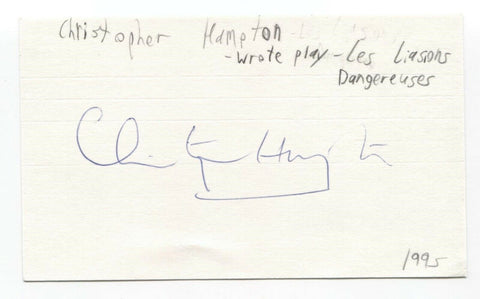 Christopher Hampton
- wrote play - Les Liasons
Dangereuses
Christopher Hampton
1995